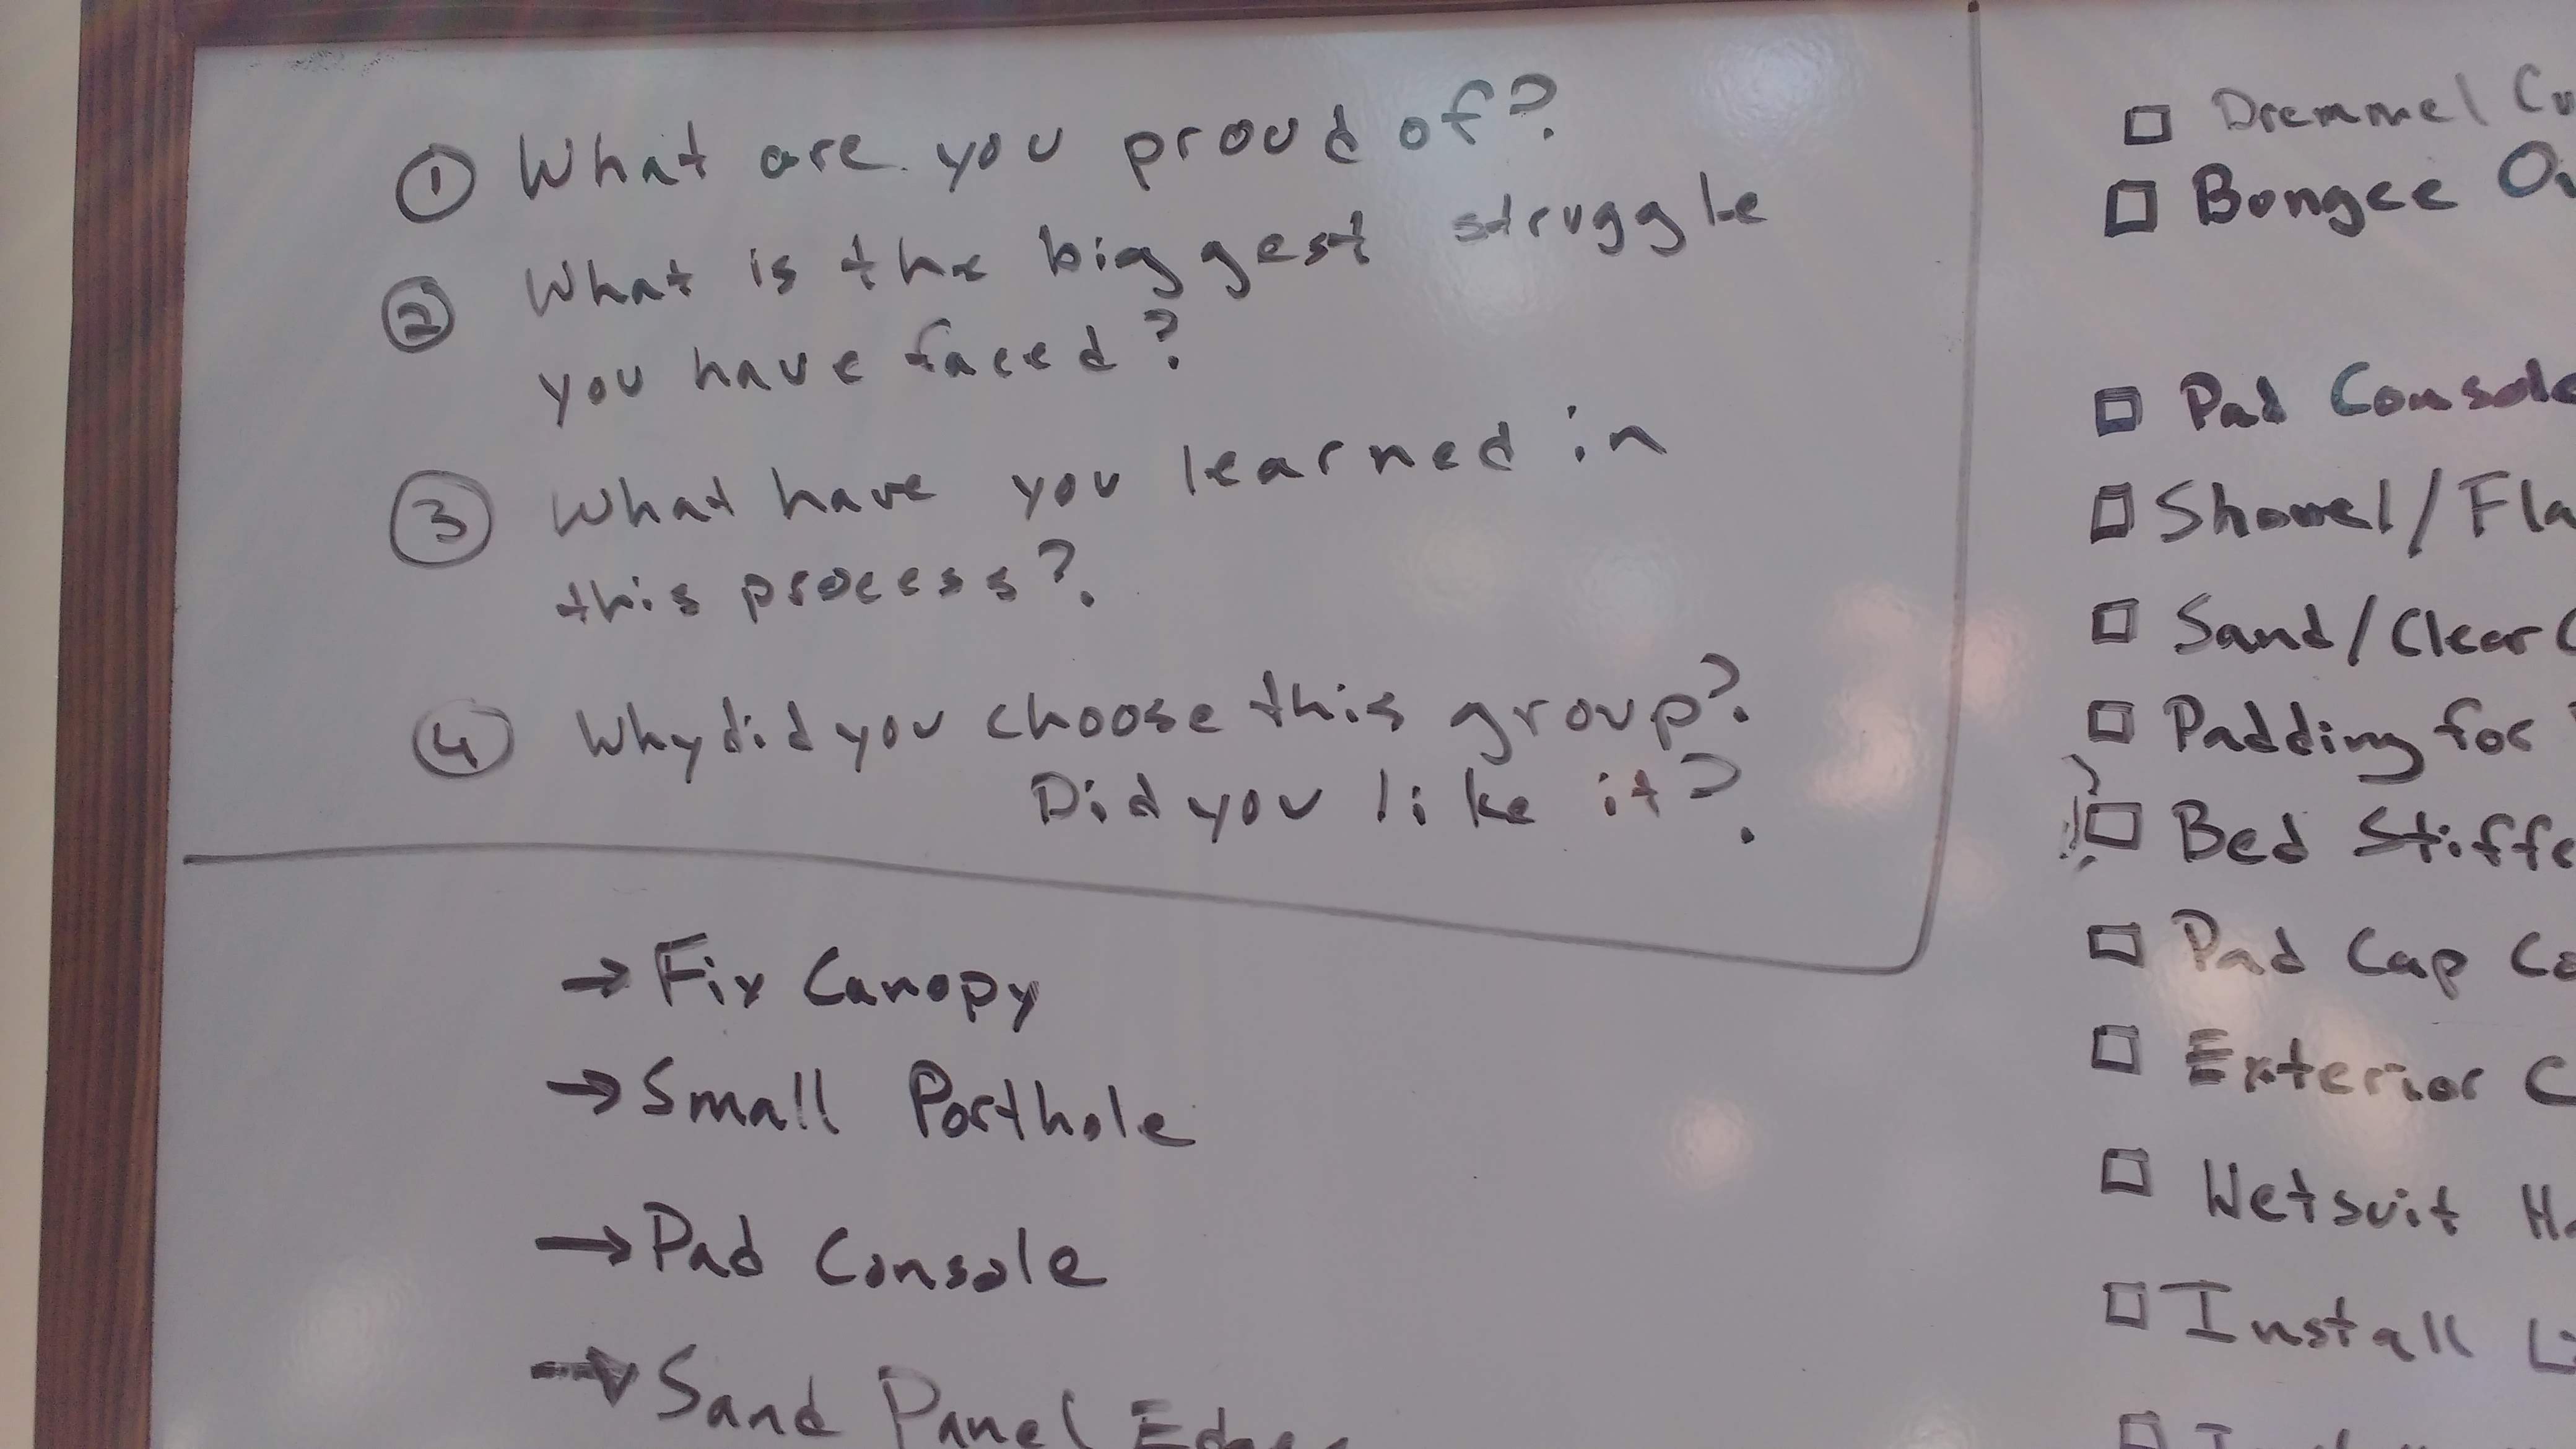 ① What are you proud of?
② What is the biggest struggle
you have faced?
③ What have you learned in
this process?
④ Why did you choose this group?
Did you like it?
→ Fix Canopy
→ Small Porthole
→ Pad Console
→ Sand Panel Edges
☐ Dremmel
☐ Bongee
☐ Pad Console
☐ Shovel/
☐ Sand/Clear
☐ Padding for
☐ Bed
☐ Pad Cap
☐ Exterior
☐ Wetsuit
☐ Install